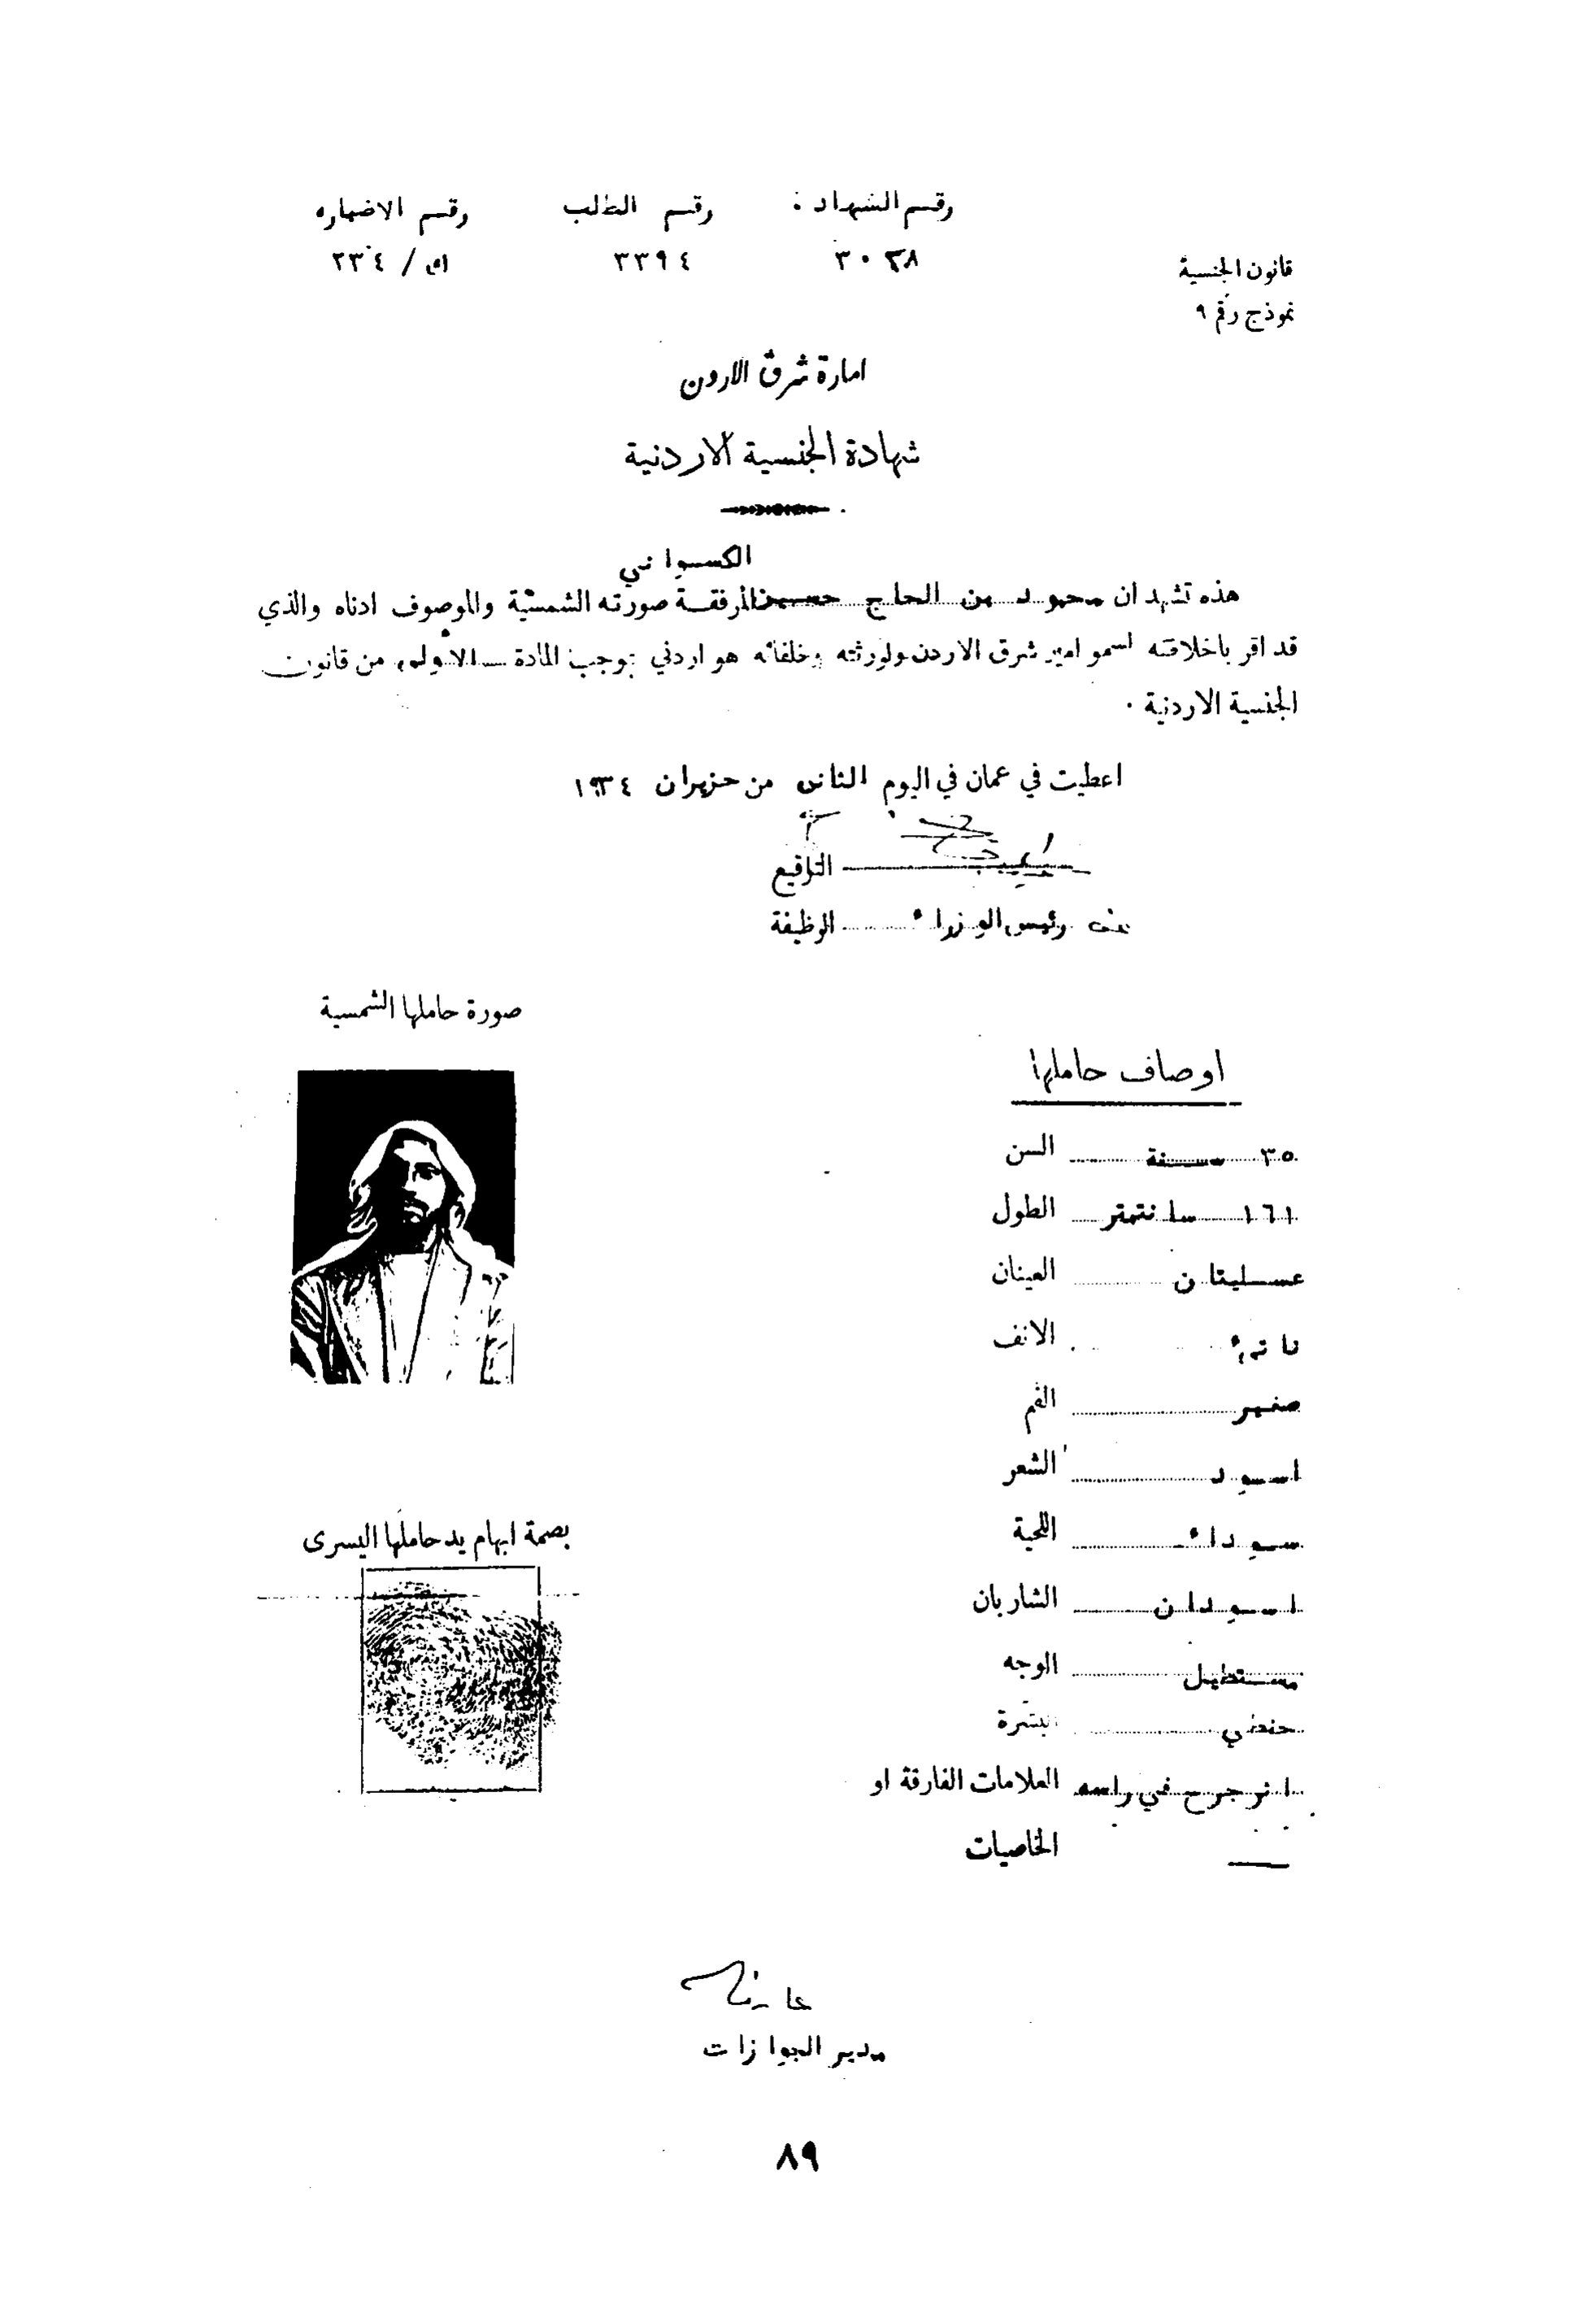 رقم الشهادة رقم الطلب رقم الاضباره
٣٣٩٤ ٢٣٤ /
قانون الجنسية
نموذج رقم ٩
امارة شرق الاردن
شهادة الجنسية الاردنية
الكسواني
هذه تشهد ان محمود بن الحاج حسين المرفقة صورته الشمسية والموصوف ادناه والذي
قد اقر باخلاصه لسمو امير شرق الاردن ولورثته وخلفائه هو اردني بموجب المادة الاولى من قانون
الجنسية الاردنية .
اعطيت في عمان في اليوم الثاني من حزيران ١٩٣٤
التوقيع
رئيس الوزراء الوظيفة
صورة حاملها الشمسية
اوصاف حاملها
السن ٣٥ سنة
الطول ١٦١ سانتمتر
العينان عسليتان
الانف ناتىء
الفم صغير
الشعر اسود
اللحية سوداء
الشاربان اسودان
الوجه مستطيل
البشرة حنطي
العلامات الفارقة او اثر جرح في راسه
الخاصيات
بصمة ابهام يد حاملها اليسرى
مدير الجوازات
٨٩